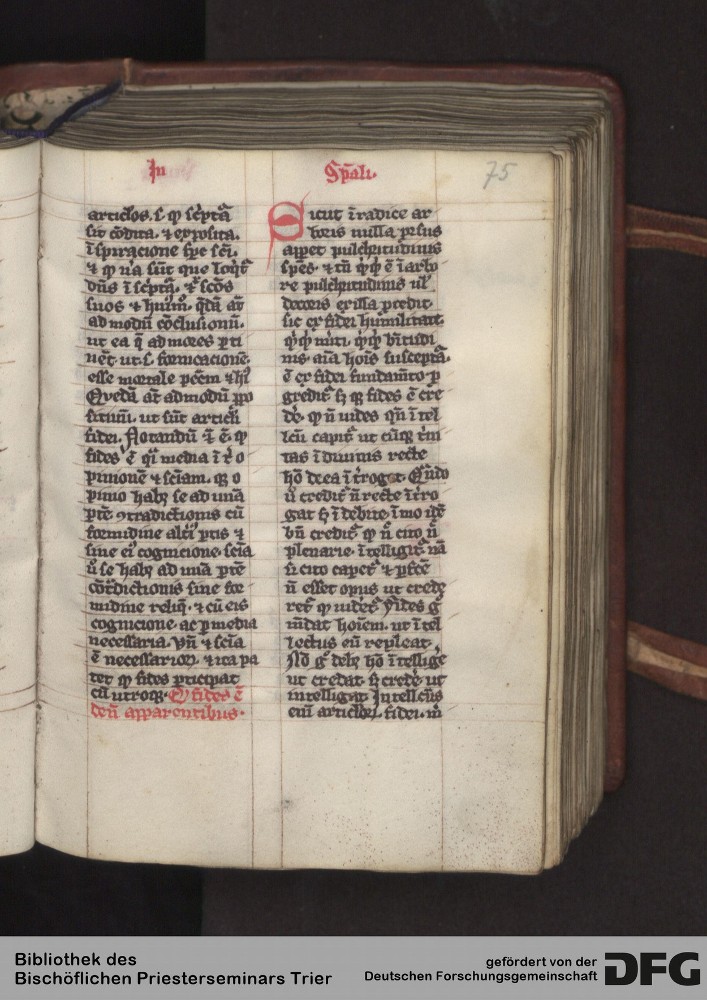 In Sp̄ali.
75
articlos. s. ꝙ sc̄ptā
sit cōdita. ⁊ exposita.
īspiracione sp̄c sc̄i.
⁊ ꝙ u̾a sūt que loq̄t᷑
dn̄s ī sc̄pta. ⁊ scōs
suos
ad modū cōclusionū.
ut ea q̄ ad mores ꝑti
nēt. ut. s. fornicacionē.
esse mortale pcc̄m
Quedā at̄ ad modū ꝓpo
situm. ut sūt articli
fidei. Notandū
fides ē q̄i media īt̾ o
pinionē ⁊ sc̄iam. qꝛ o
pinio habꝫ se ad unā
ꝑtē ꝯtradictionis cū
formidine alt̾i᷒ ꝑtis ⁊
sine ei᷒ cognicione. sc̄ia
u̾o se habꝫ ad unā ꝑtē
cōt̾dictionis sine for
midine reliq̄. ⁊ cū eis
cognicione. ac ꝑ media
necessaria. Vn̄ ⁊ sc̄ia
ē necessarioꝝ. ⁊ ita pa
tet ꝙ fides ꝑticipat
cū utroqꝫ. Q fides ē
apparentibus.
Sicut ī radice ar
boris nulla p̄rsus
appet pulchritudinis
sp̄es. ⁊ tn̄ q̄cq̄d ē ī arbo
re pulchritudinis ul̾
decoris ex illa ꝓcedit.
sic ex fidei hūmilitate.
q̄cq̄d mīti. q̄cq̄d bt̄itudi
nis. aīa hoīs susceptā.
ē ex fidei fundam̄to ꝓ
gredit᷑ sꝫ qꝛ fides ē cre
de᷒. ꝙ n̄ uides qn̄ ītel
lcū capit᷑ ut cūqꝫ t̾ni
tas ī diuinis recte
hō dc̄ ea īt̾rogat. Qn̄do
u̾ credit᷑ n̄ recte īt̾ro
gat sꝫ ī debite. īmo id̾
bn̄ credit᷑ ꝙ n̄ cito n̄
plenarie. ītelligit᷑ nā
si cito capet᷑ ⁊ ꝑfc̄e
n̄ esset opus ut crede
ret᷑ ꝙ uidet᷑ Fides g̾
mūdat hoīem. ut ītel
lectus eū repleat.
g̾ debꝫ hō ītellige᷒
ut credat. sꝫ crede᷒ ut
intelligat. Intellcūs
enī articloꝝ. fidei. m̄
Bibliothek des
Bischöflichen Priesterseminars Trier
gefördert von der
Deutschen Forschungsgemeinschaft
DFG